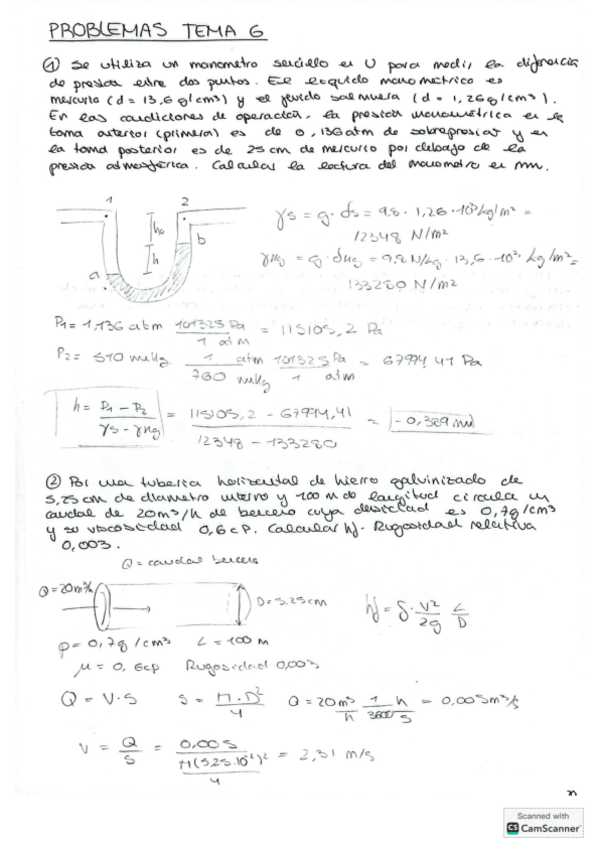 PROBLEMAS TEMA 6
① Se utiliza un manometro sencillo en U para medir la diferencia
de presion entre dos puntos. El liquido manometrico es
mercurio (d = 13,6 g/cm³) y el fluido salmuera (d = 1,26 g/cm³).
En las condiciones de operacion, la presion manometrica en la
toma anterior (primera) es de 0,136 atm de sobrepresion y en
la toma posterior es de 25 cm de mercurio por debajo de la
presion atmosferica. Calcular la lectura del manometro en mm.
1 2
ho
h
a
b
γs = g · ds = 9,8 · 1,26 · 10³ kg/m² =
12348 N/m²
γHg = g · dHg = 9,8 N/kg · 13,6 · 10³ kg/m² =
133280 N/m²
P1 = 1,136 atm 101325 Pa / 1 atm = 115105,2 Pa
P2 = 510 mmHg 1 atm / 760 mmHg 101325 Pa / 1 atm = 67994,41 Pa
h = P1 - P2 / γs - γHg = 115105,2 - 67994,41 / 12348 - 133280 = -0,389 m
② Por una tuberia horizontal de hierro galvinizado de
5,25 cm de diametro interno y 100 m de longitud circula un
caudal de 20 m³/h de benceno cuya densidad es 0,7 g/cm³
y su viscosidad 0,6 cP. Calcular hf. Rugosidad relativa
0,003.
Q = caudal benceno
Q = 20 m³/h
D = 5,25 cm
hf = δ · V²/2g L/D
ρ = 0,7 g/cm³ L = 100 m
μ = 0,6 cp Rugosidad 0,003
Q = V · S S = π · D² / 4 Q = 20 m³/h 1 h / 3600 s = 0,005 m³/s
V = Q / S = 0,005 / π (5,25 · 10⁻²)² / 4 = 2,31 m/s
Scanned with
CS CamScanner